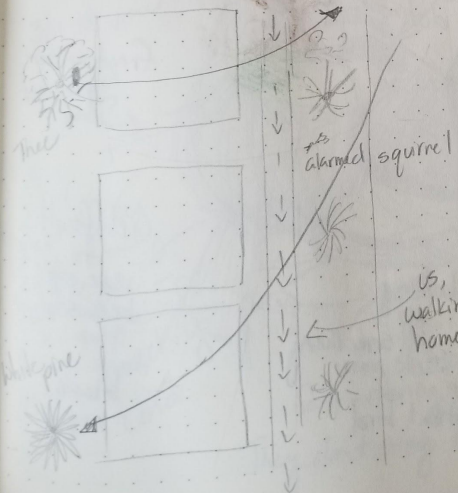 Tree
alarmed squirrel
us,
home
White pine